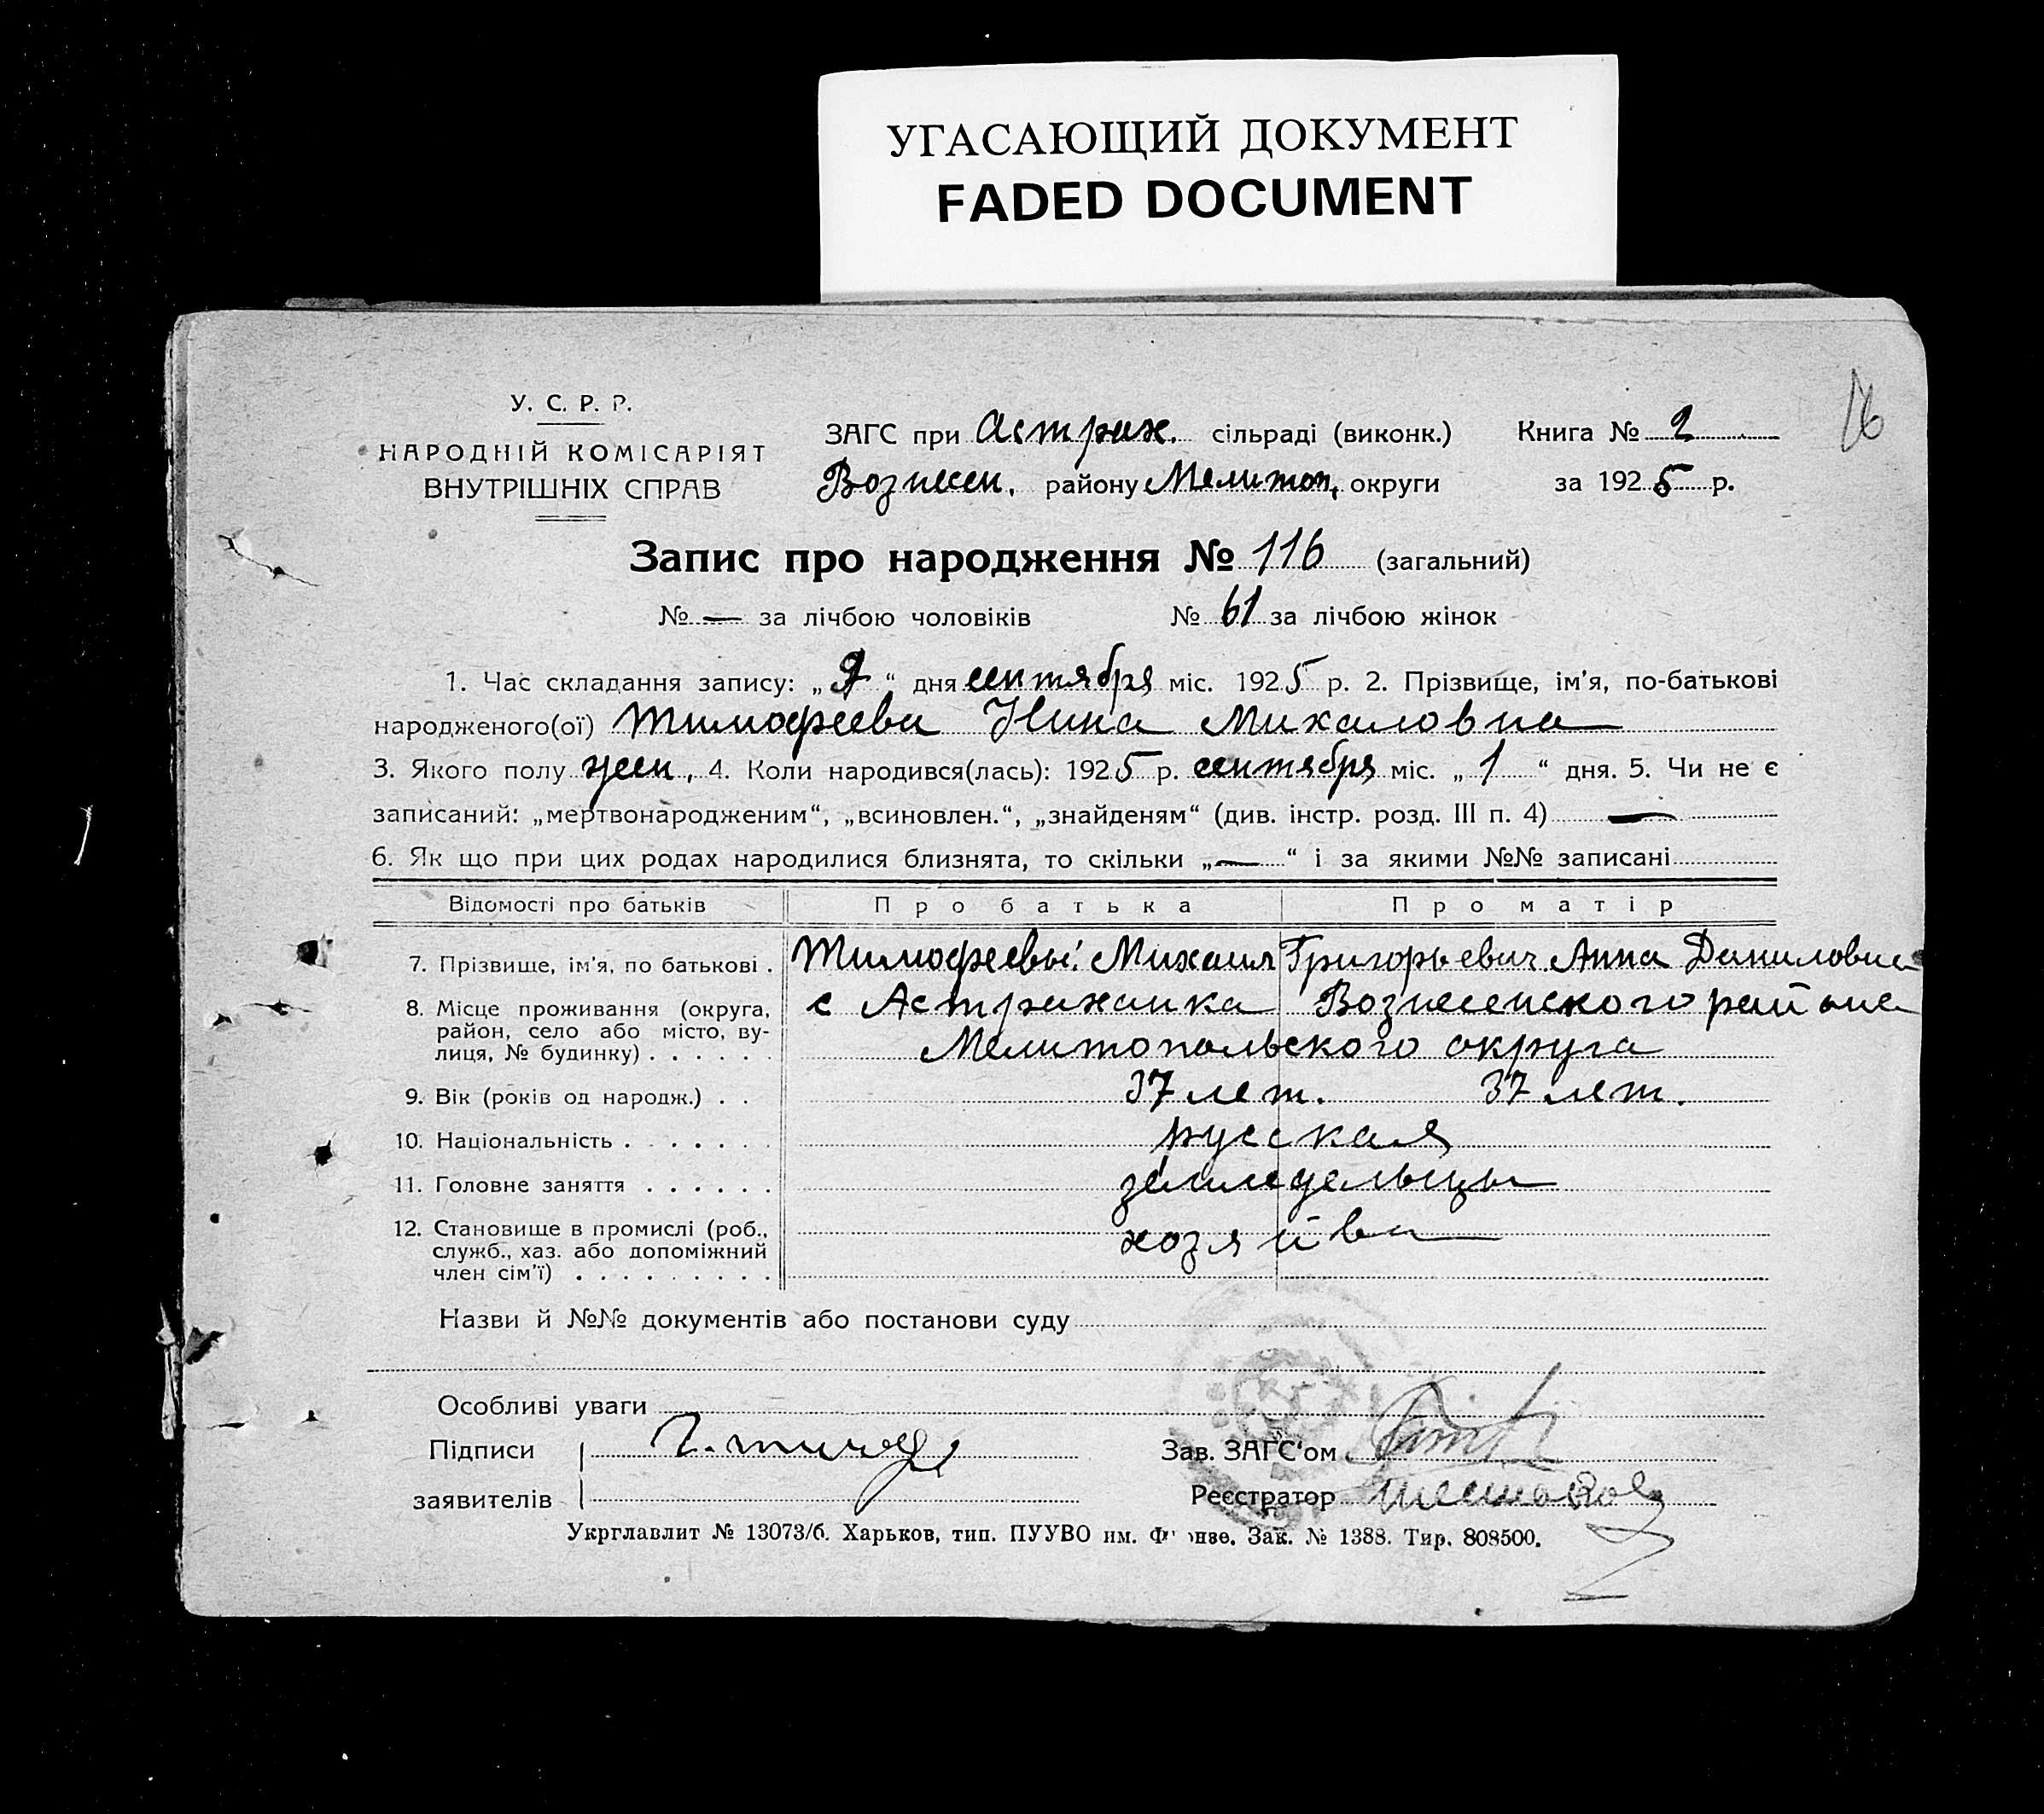 УГАСАЮЩИЙ ДОКУМЕНТ
FADED DOCUMENT
16
У. С. Р. Р.
НАРОДНІЙ КОМІСАРІЯТ
ВНУТРІШНІХ СПРАВ
ЗАГС при Астрах. сільраді (виконк.) Книга № 2
Вознесен. району Мелитоп. округи за 1925 р.
Запис про народження № 116 (загальний)
№ — за лічбою чоловіків № 61 за лічбою жінок
1. Час складання запису: „ “ дня сентября міс. 1925 р. 2. Прізвище, ім'я, по-батькові
народженого(ої) Тимофеева Нина Михаловна
3. Якого полу жен. 4. Коли народився(лась): 1925 р. сентября міс. „1“ дня. 5. Чи не є
записаний: „мертвонародженим“, „всиновлен.“, „знайденям“ (див. інстр. розд. III п. 4) —
6. Як що при цих родах народилися близнята, то скільки „—“ і за якими №№ записані
Відомості про батьків Про батька Про матір
7. Прізвище, ім'я, по батькові . Тимофеевы: Михаил Григорьевич Анна Даниловна
8. Місце проживання (округа, с Астраханка Вознесенского района
район, село або місто, ву-
лиця, № будинку) . . . . . . Мелитопольского округа
9. Вік (років од народж.) . . 37 лет. 37 лет.
10. Національність . . . . . . . русская
11. Головне заняття . . . . . . земледельцы
12. Становище в промислі (роб., хозяйва
служб., хаз. або допоміжний
член сім'ї) . . . . . . . . .
Назви й №№ документів або постанови суду
Особливі уваги
Підписи Зав. ЗАГС'ом
заявителів Реєстратор
Укрглавлит № 13073/б. Харьков, тип. ПУУВО им. Фрунзе. Зак. № 1388. Тир. 808500.